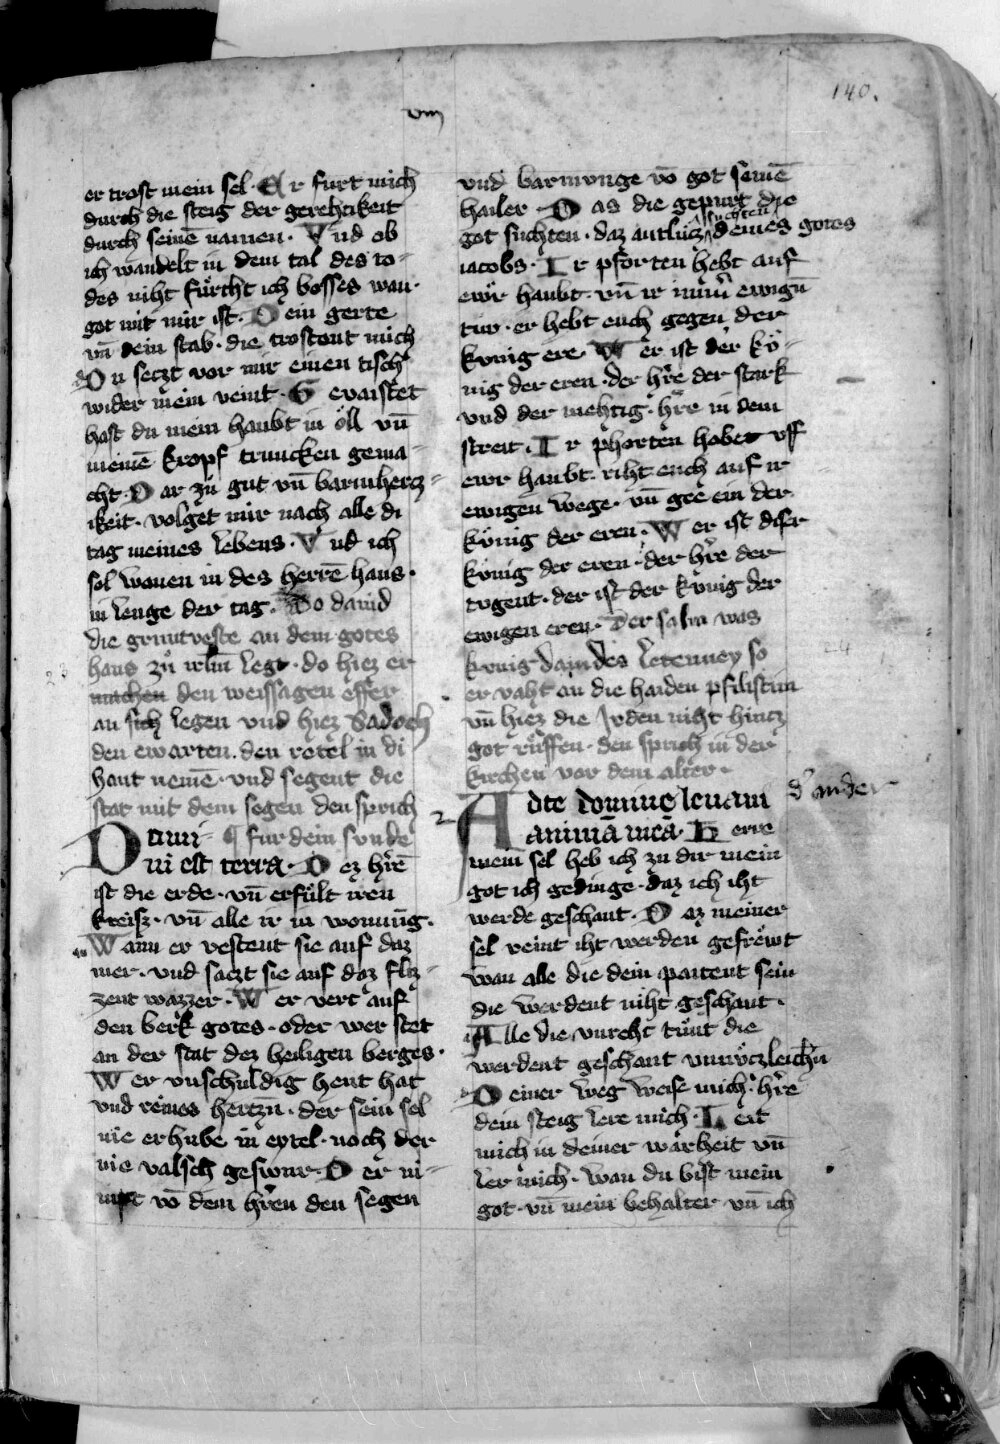 140.
viij
er trost mein sel · Er furt mich
durch die steig der gerehtikeit
durch seinē namen · Vnd ob
ich wandelt in dem tal des to-
des niht fürcht ich bosses wan ·
got mit mir ist · Dein gerte
vn̄ dein stab · die trostont mich
Du seczt vor mir einen tisch
wider mein veint · Gevaistet
hast du mein haubt in öll vn̄
meinē kropf truncken gema-
cht · Dar zů gut vn̄ barmhercz-
ikeit · volget mir nach alle di
tag meines lebens · Vnd ich
sol wonen in des herrē haus ·
in lenge der tag · Do dauid
die gruntveste an dem gotes
haus zů irlm̄ legt · do hiez er
machen den weissagen effer
an sich legen vnd hiez Sadoch
den ewarten · den rotel in di
hant nemē · vnd segent die
stat mit dem segen den sprich
Domi- ¶ fur dein sunde
ni est terra · Dez hr̄e
ist die erde · vn̄ erfült iren
kreisz · vn̄ alle ir in wonung ·
Wann er vestent sie auf daz
mer · vnd saczt sie auf daz fliz-
zent wazzer · Wer vert auf
den berk gotes · oder wer stet
an der stat dez heiligen berges ·
Wer vnschuldig hent hat
vnd reines hertzn̄ · der sein sel
nie erhube in eytel · noch der
nie valsch geswur · Der ni-
mpt vō dem hr̄en den segen
vnd barmunge vō got seinē
hailer · Das die gepurt die
got suchten · daz antlücz suchten deines gotes
iacobs · Ir pforten hebt auf
ewr haubt · vn̄ ir ewign̄
tür · er hebt euch gegen der
kvnig ere · Wer ist der kö-
nig der eren · der hr̄e der stark
vnd der mehtig · hr̄e in dem
streit · Ir phorten hebet vff
ewr haubt · riht euch auf ir
ewigen wege · vn̄ gee ein der
kv̈nig der eren · Wer ist diser
kv̈nig der eren · der hr̄e der
tvgent · der ist der kv̈nig der
ewigen eren · Der salm was
kvnig dauides letenney so
er vaht an die haiden pfilistim
vn̄ hiez die Juden niht hincz
got rüffen · den sprich in der
kirchen vor dem alter ·
Adte domine leuam d' ander
animā meā · Herre
mein sel heb ich zu dir mein
got ich gedinge · daz ich iht
werde geschant · Daz meiner
sel veint iht werden gefrewt
wan alle die dein paitent sein
die werdent niht geschant ·
Alle die vnreht tünt die
werdent geschant vnnüczleichn̄
Deiner weg weise mich · hr̄e
dein steig lere mich · Leit
mich in deiner warheit vn̄
ler mich · wan du bist mein
got · vn̄ mein behalter vn̄ ich